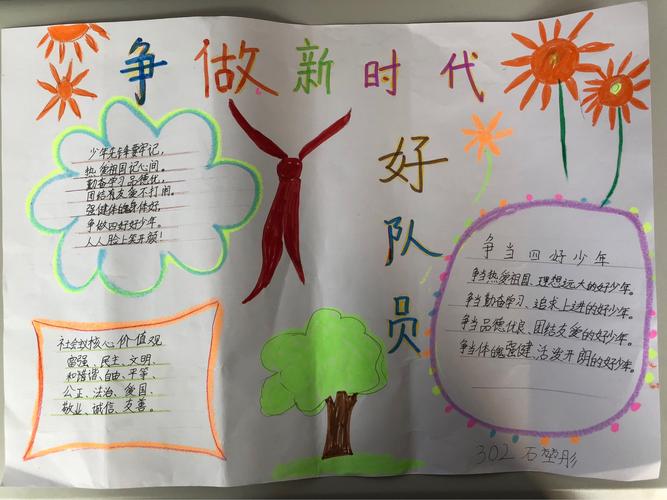 争做新时代
好队员
少年先锋要牢记,
热爱祖国记心间。
勤奋学习品德优,
团结友爱不打闹。
强健体魄身体好,
争做四好好少年。
人人脸上笑开颜!
争当四好少年
争当热爱祖国、理想远大的好少年。
争当勤奋学习、追求上进的好少年。
争当品德优良、团结友爱的好少年。
争当体魄强健、活泼开朗的好少年。
社会主义核心价值观
富强、民主、文明、
和谐、自由、平等、
公正、法治、爱国、
敬业、诚信、友善。
302 石堃彤